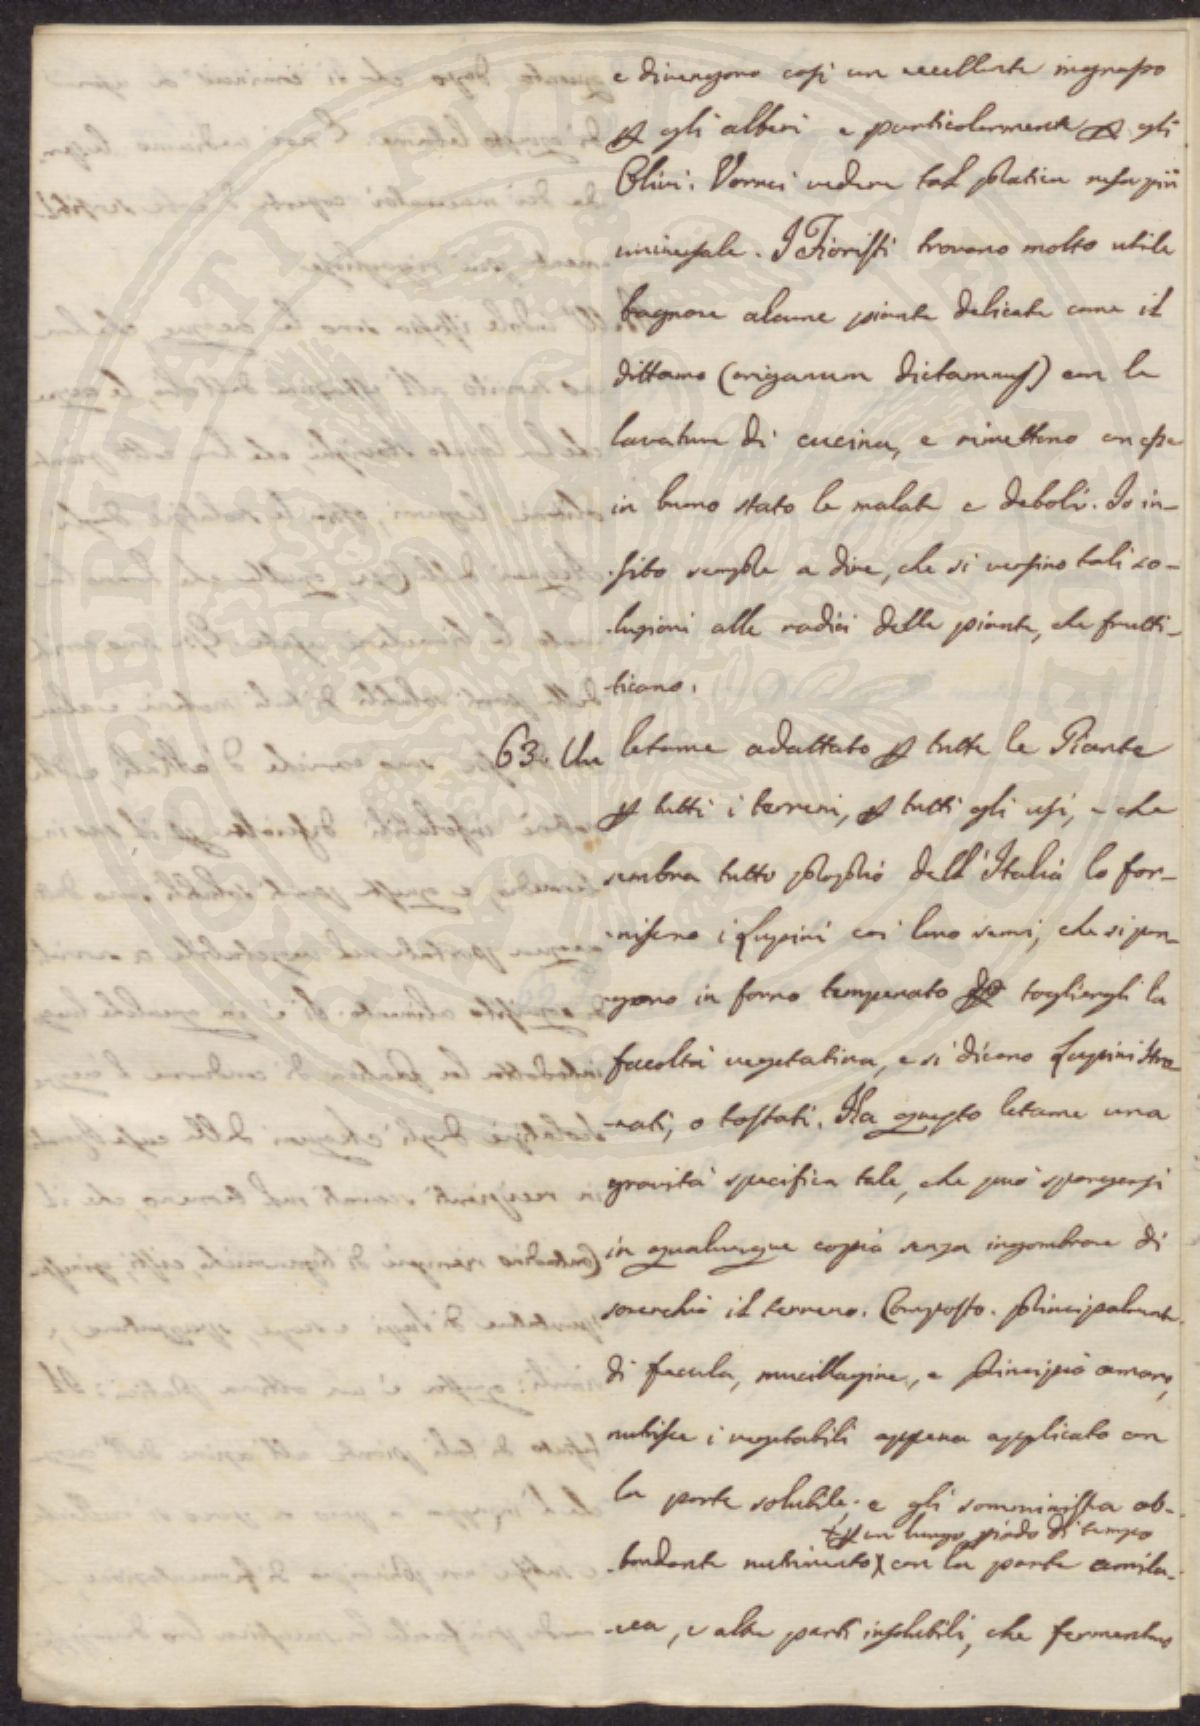 e divengono così un eccellente ingrasso
p gli alberi e particolarmente p gli
Olivi. Vorrei vedere tal pratica resa più
universale. I Fioristi trovano molto utile
bagnare alcune piante delicate come il
dittamo (origanum dictamnus) con la
lavatura di cucina, e rimettono con essa
in buono stato le malate e deboli. Io in-
sisto sempre a dire, che si versino tali so-
luzioni alle radici delle piante, che frutti-
ficano.
63. Un letame adattato p tutte le Piante
p tutti i terreni, p tutti gli usi, e che
sembra tutto proprio dell'Italia lo for-
niscono i Lupini coi loro semi, che si pon-
gono in forno temperato p togliergli la
facoltà vegetativa, e si dicono Lupini
nati, o tostati. Ha questo letame una
gravità specifica tale, che può spargersi
in qualunque copia senza ingombrare di
soverchio il terreno. Composto principalmente
di fecula, mucillagine, e principio amaro,
nutrisce i vegetabili appena applicato con
la parte solubile; e gli somministra ab-
p un lungo piodo di tempo
bondante nutrimento con la parte amila-
cea, e altre parti insolubili, che fermentano